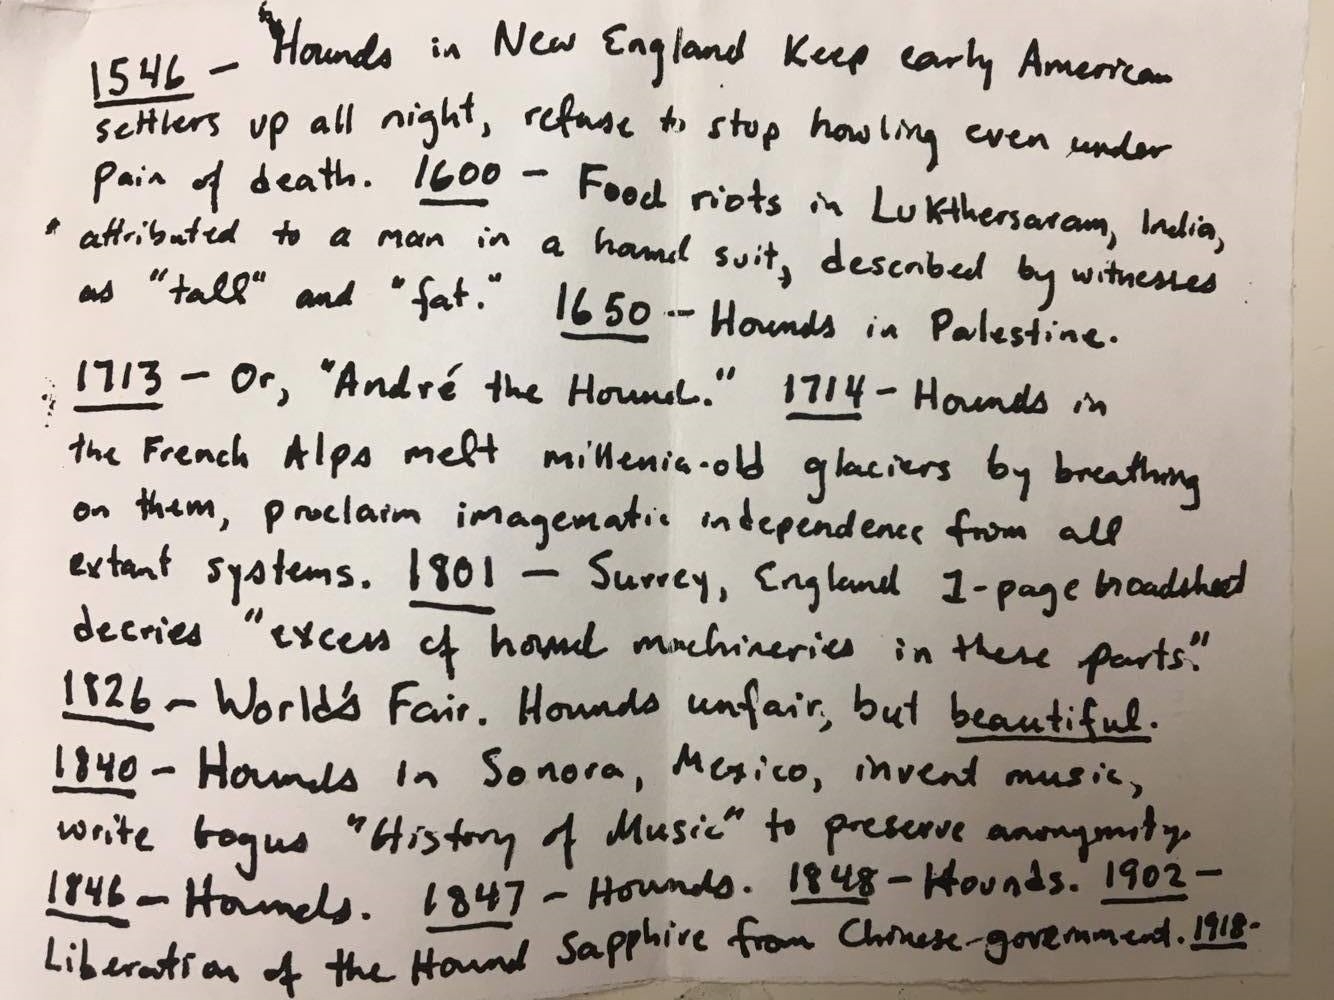 1546 - Hounds in New England Keep early American
settlers up all night, refuse to stop howling even under
pain of death. 1600 - Food riots in Lukthersaram, India,
* attributed to a man in a hound suit, described by witnesses
as "tall" and "fat." 1650 -- Hounds in Palestine.
1713 - Or, "André the Hound." 1714 - Hounds in
the French Alps melt millenia-old glaciers by breathing
on them, proclaim imagematic independence from all
extant systems. 1801 - Surrey, England 1-page broadsheet
decries "excess of hound machineries in these parts."
1826 - World's Fair. Hounds unfair, but beautiful.
1840 - Hounds in Sonora, Mexico, invent music,
write bogus "History of Music" to preserve anonymity.
1846 - Hounds. 1847 - Hounds. 1848 - Hounds. 1902 -
Liberation of the Hound Sapphire from Chinese government. 1918-